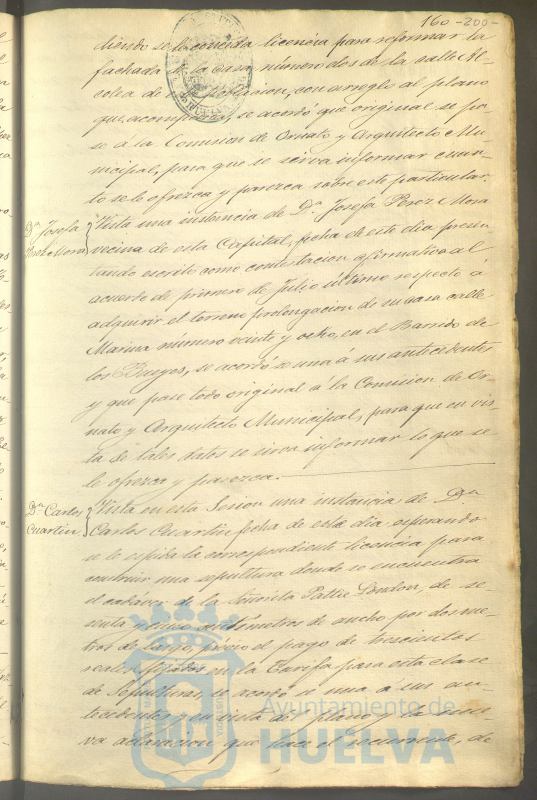 160 -200-
diendo se le conceda licencia para reformar la
fachada de la casa número dos de la calle Al-
colea de su profesion, con arreglo al plano
que acompaña, se acordó que original se pa-
se á la Comision de Ornato y Arquitecto Mu-
nicipal, para que se sirva informar cuan-
to se le ofrezca y parezca sobre este particular.
Dª Josefa
Perez Mora
Vista una instancia de Dª Josefa Perez Mora
vecina de esta Capital, fecha de este dia presen-
tando escrito como contestacion afirmativa al
acuerdo de primero de Julio último respecto á
adquirir el terreno prolongacion de su casa calle
Marina número veinte y ocho, en el Barrido de
los Bueyes, se acordó se una á sus antecedentes
y que pase todo original á la Comision de Or-
nato y Arquitecto Municipal, para que en vis-
ta de tales datos se sirva informar lo que se
le ofrezca y parezca.
Dn Carlos
Cuartin
Vista en esta Sesion una instancia de Dn
Carlos Cuartin fecha de este dia, esperando
se le espida la correspondiente licencia para
construir una sepultura donde se encuentra
el cadáver de la Señorita Pattie London, de se-
senta y cinco centímetros de ancho por dos me-
tros de largo, previo el pago de trescientos
reales fijados en la Tarifa para esta clase
de Sepulturas, se acordó se una á sus an-
tecedentes y en vista del plano y la nue-
va aclaracion que hace el recurrente, de
Ayuntamiento de
HUELVA